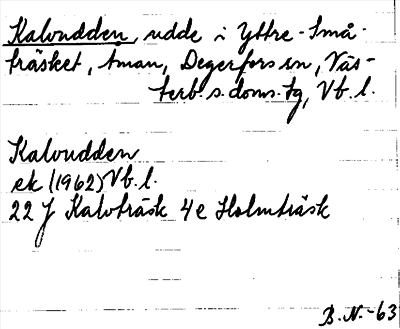 Kalvudden, udde i Yttre-Små-
träsket, Åman, Degerfors sn, Väs-
terb s. doms. tg, Vb. l.
Kalvudden
ek (1962) Vb. l.
22 J Kalvträsk 4e Holmträsk
B. N. -63